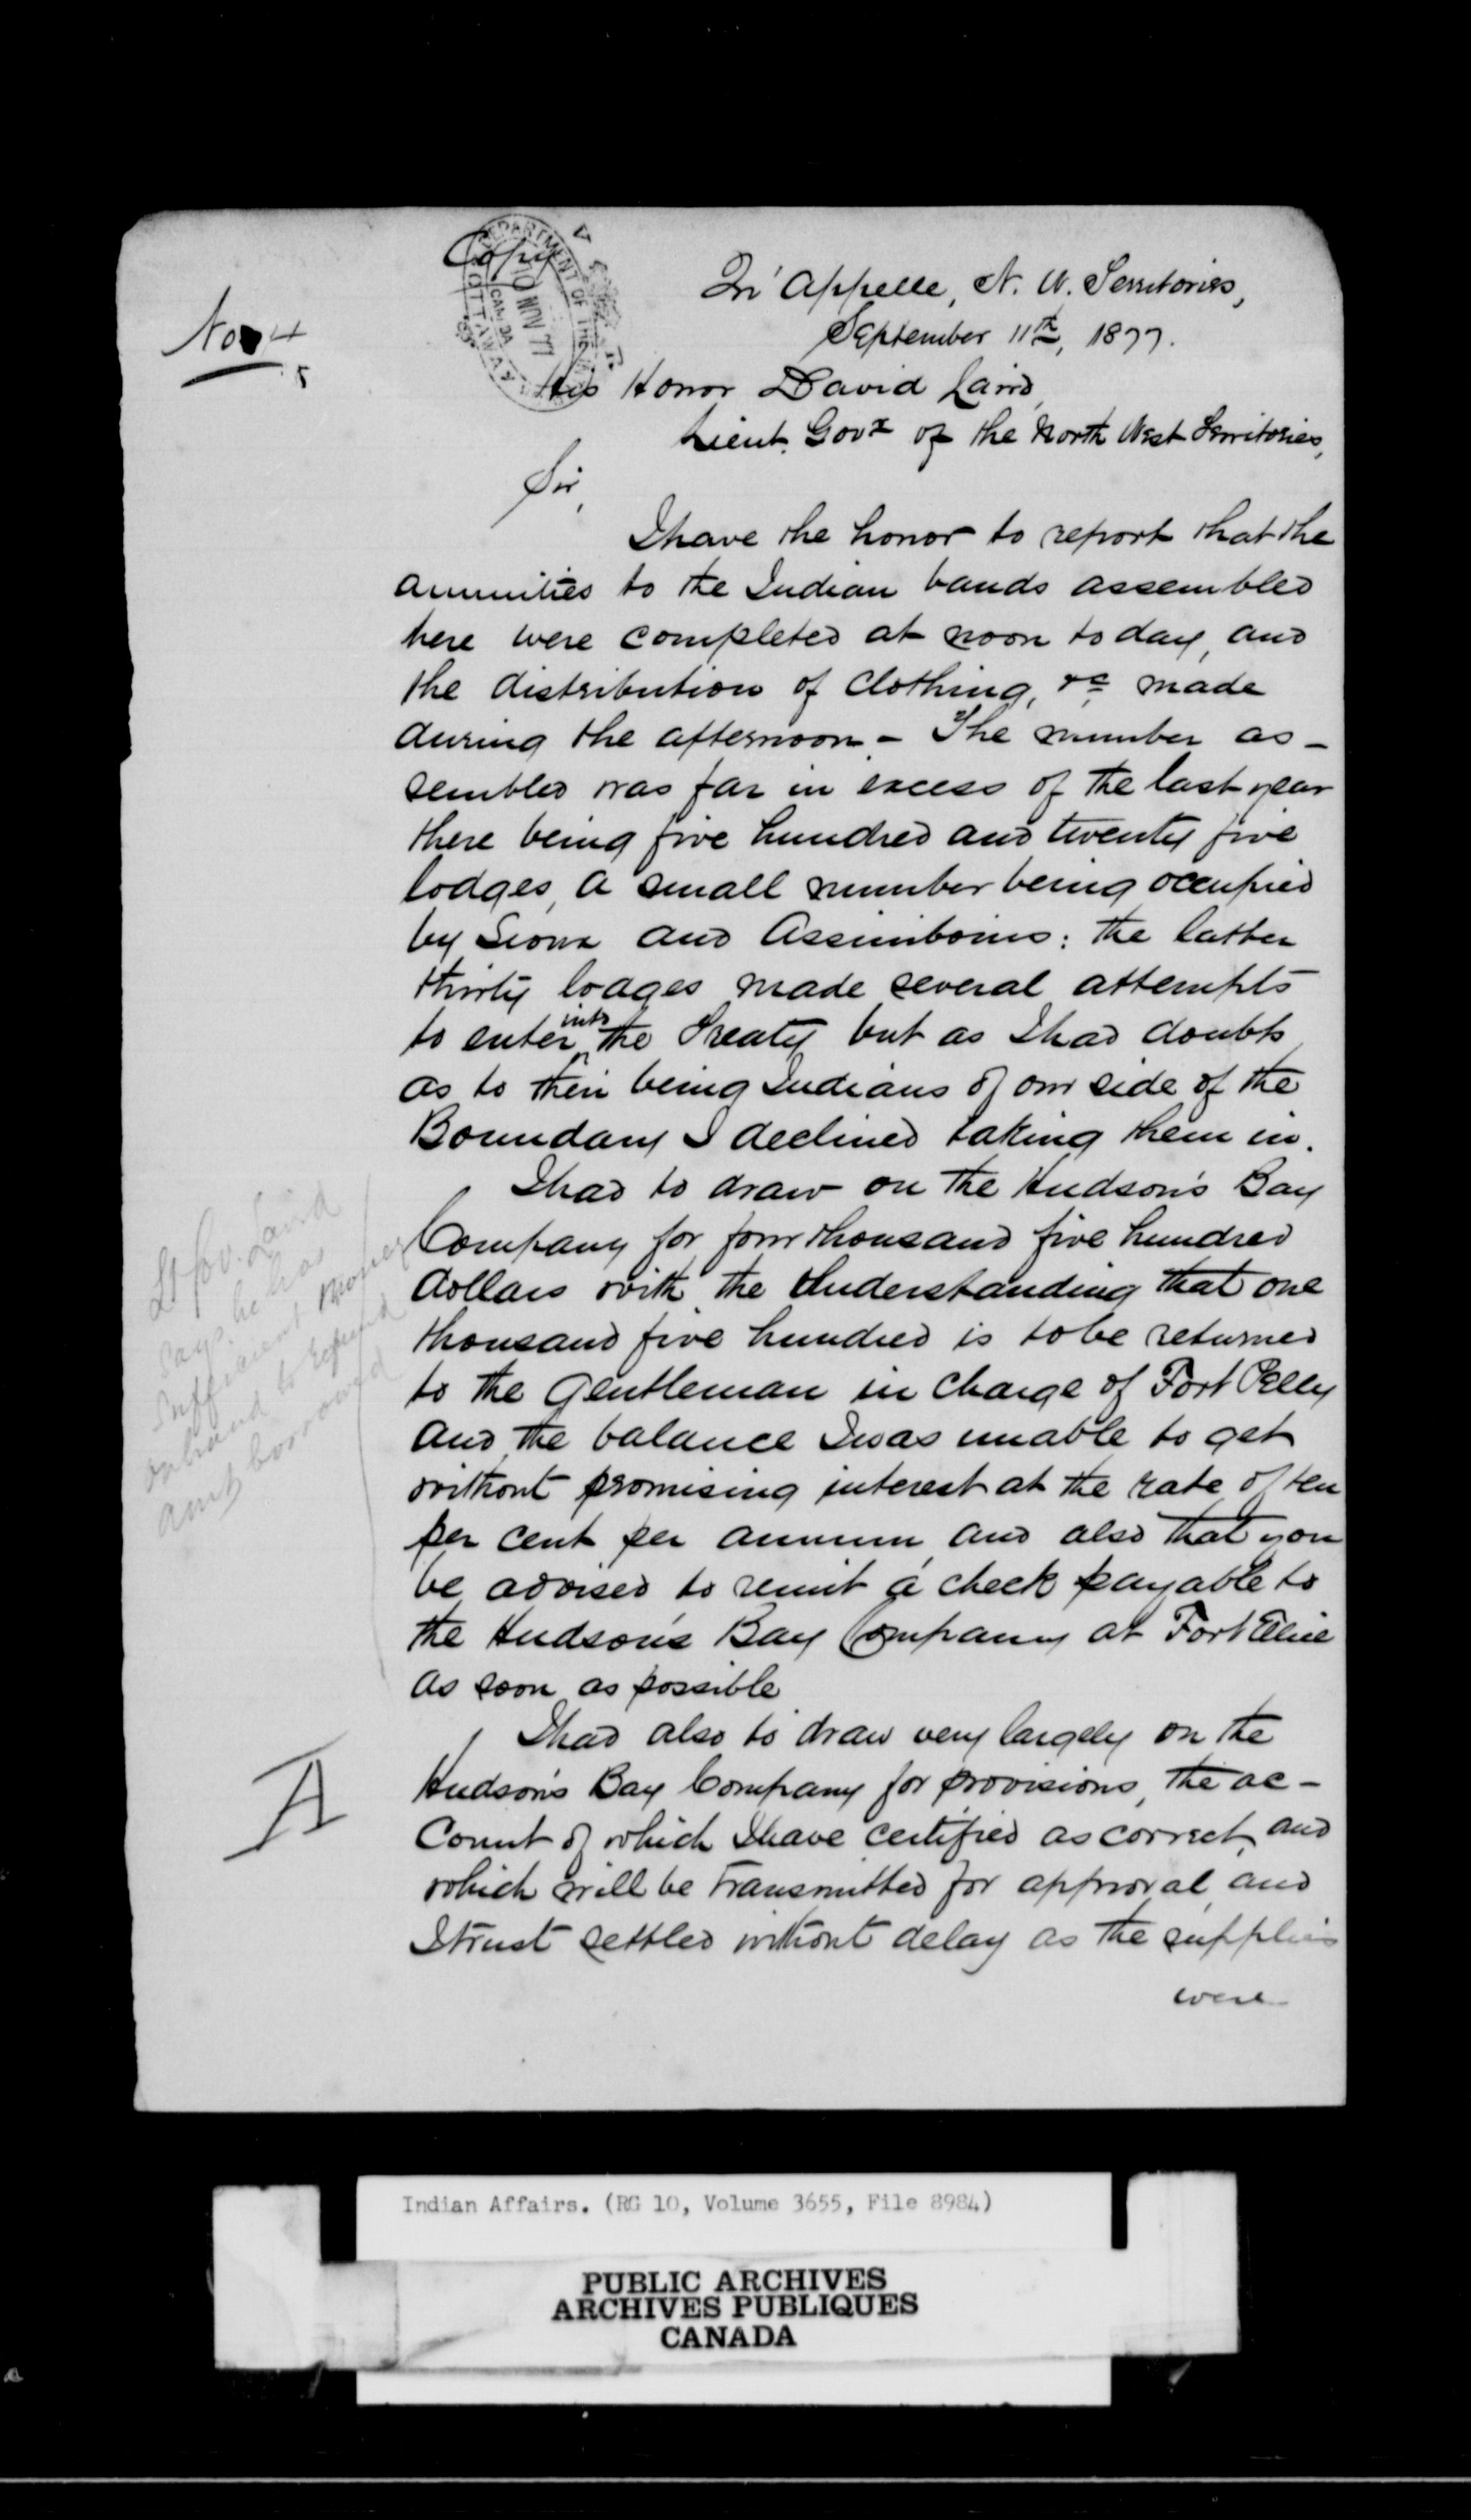 Copy
DEPARTMENT OF THE
10 NOV 77
CANADA
OTTAWA
No 4
5
Qu'Appelle, N. W. Territories,
September 11th, 1877.
His Honor David Laird,
Lieut. Govr of the North West Territories,
Sir,
I have the honor to report that the
annuities to the Indian bands assembled
here were completed at noon to day, and
the distribution of clothing, &c made
during the afternoon - The number as-
sembled was far in excess of the last year
there being five hundred and twenty five
lodges, a small number being occupied
by Sioux and Assiniboins: the latter
thirty lodges made several attempts
to enter into the Treaty but as I had doubts
as to their being Indians of our side of the
Boundary I declined taking them in.
I had to draw on the Hudson's Bay
Company for four thousand five hundred
dollars with the understanding that one
thousand five hundred is to be returned
to the Gentleman in charge of Fort Pelly
and the balance I was unable to get
without promising interest at the rate of ten
per cent per annum, and also that you
be advised to remit a check payable to
the Hudson's Bay Company at Fort Ellice
as soon as possible
I had also to draw very largely on the
Hudson's Bay Company for provisions, the ac-
count of which I have certified as correct, and
which will be transmitted for approval, and
I trust settled without delay as the supplies
were
Lt Gov. Laird
says he has
sufficient money
on hand to refund
amt borrowed
A
Indian Affairs. (RG 10, Volume 3655, File 8984)
PUBLIC ARCHIVES
ARCHIVES PUBLIQUES
CANADA